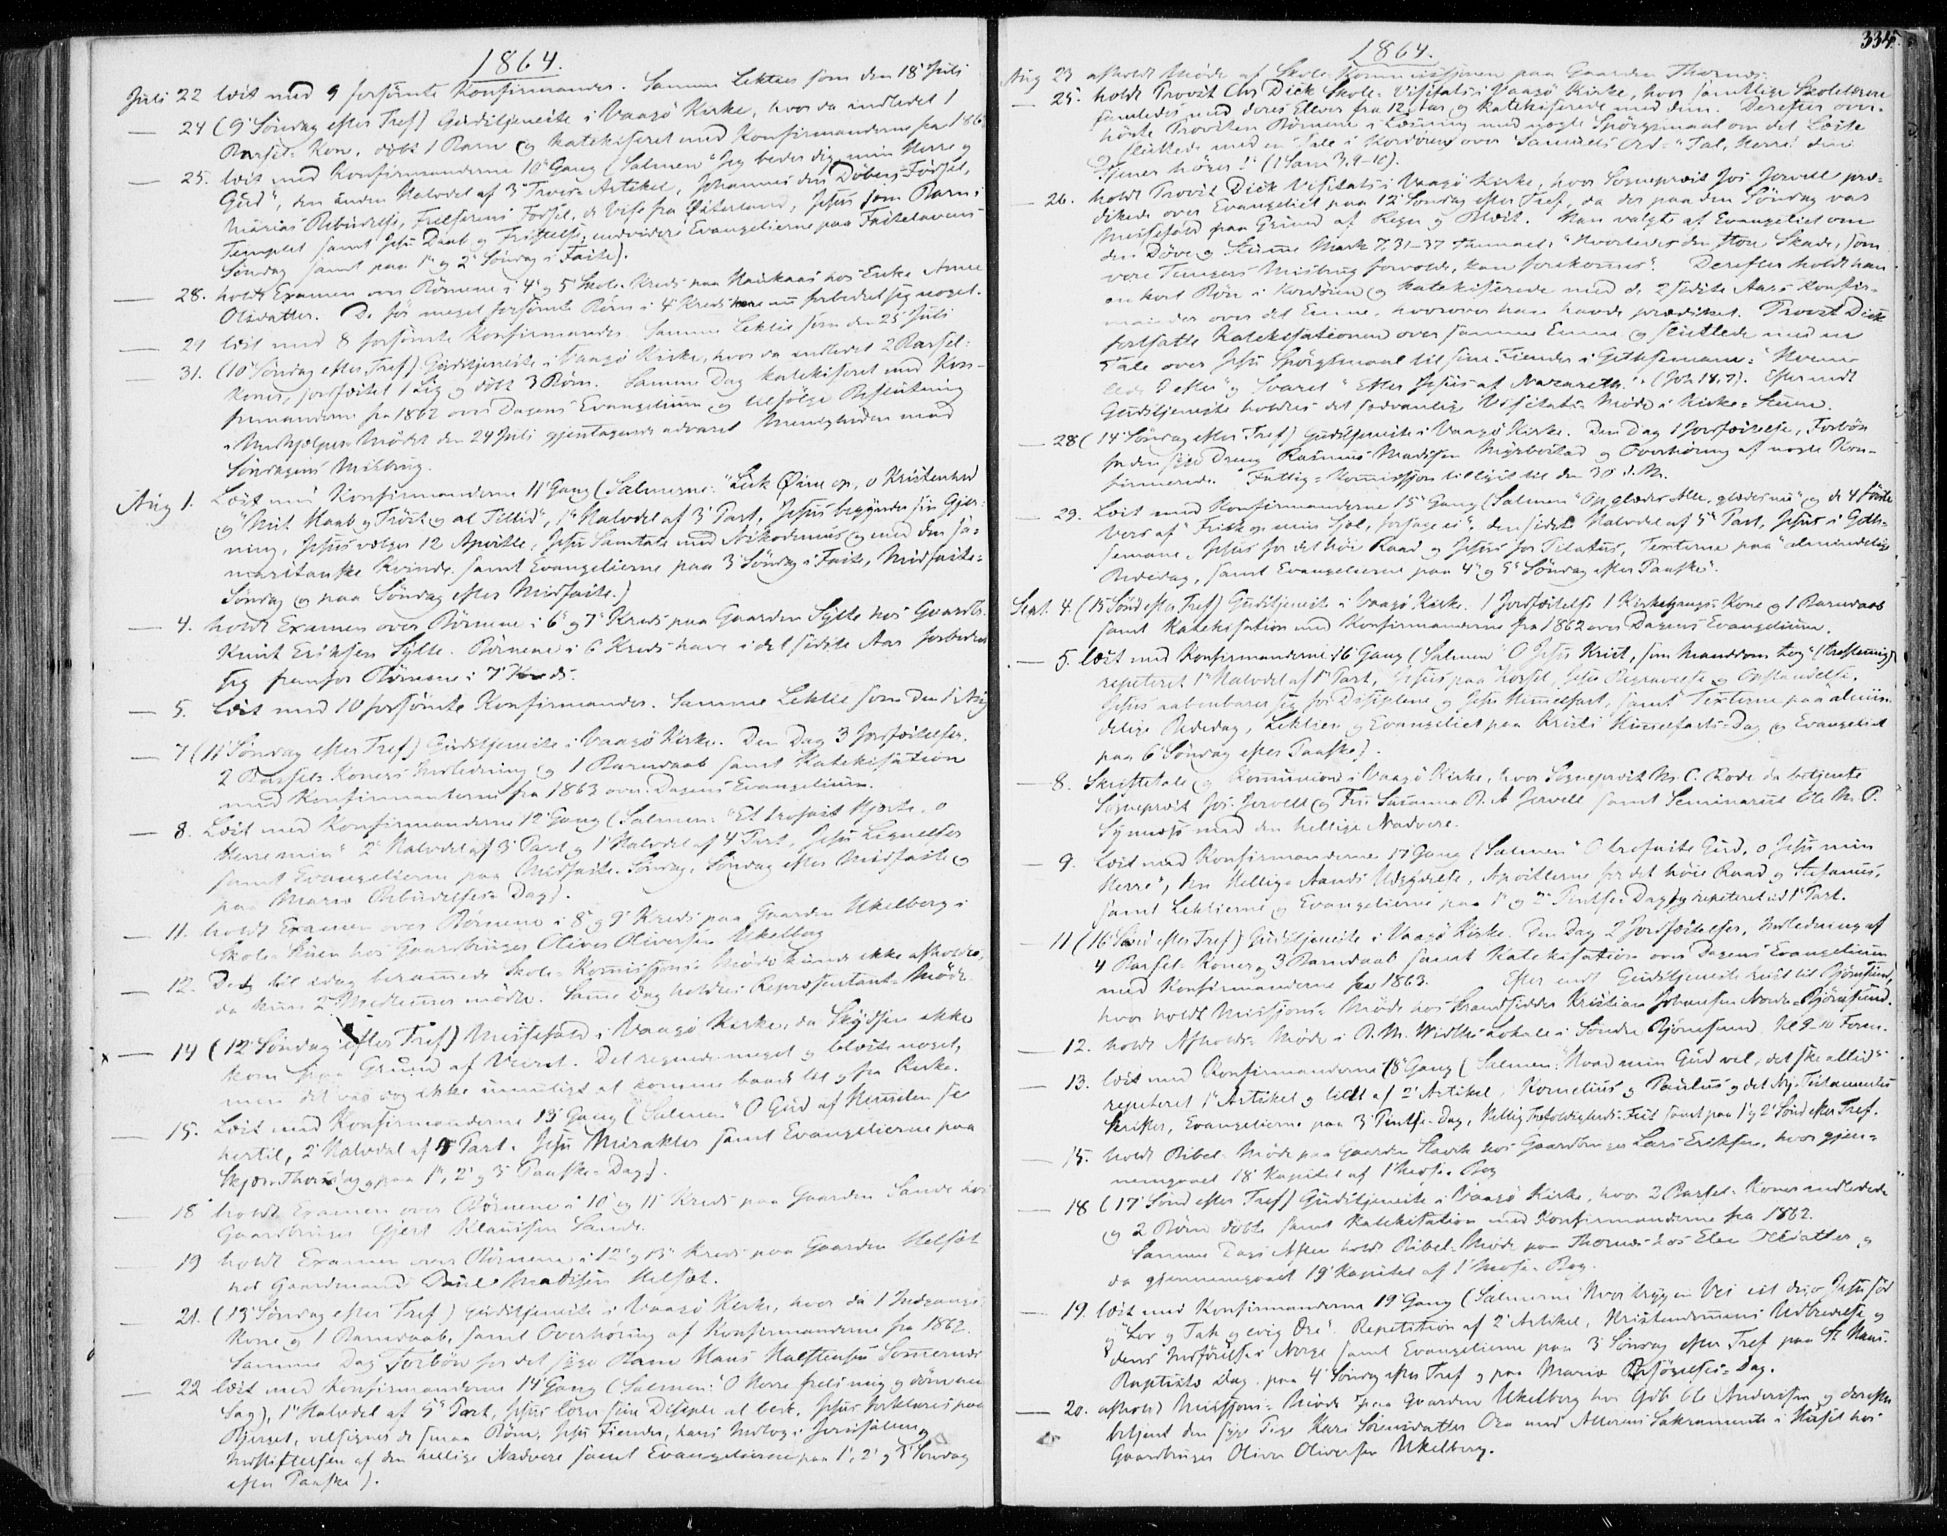 1864.
Juli 22 læst med 9 forsømte Konfirmander. Samme Lektier som den 18 Juli
— 24 (9 Søndag efter Tref) Gudstjeneste i Vaagø Kirke, hvor da indledet 1
Barsel-Kone, døbt 1 Barn og katekiseret med Konfirmanderne fra 186
— 25. læst med Konfirmanderne 10 Gang (Salmen "Jeg beder dig, min Herre og
Gud", den anden Halvdel af 3 Troes-Artikel, Johannes den Døbers Fødsel,
Marias Bebudelse, Frelserens Fødsel, de Vise fra Østerland, Jesus som Barn i
Templet samt Jesu Daab og Fristelse, endvidere Evangelierne paa Fastelavens
Søndag samt paa 1 og 2 Søndag i Faste).
— 28. holdt Examen over Børnene i 4 og 5 Skole-Kreds paa Haukaas hos Enke Anne
Olsdatter. De før meget forsømte Børn i 4 Kreds have nu forbedret sig noget.
— 29 læst med 8 forsømte Konfirmander. Samme Lektie som den 25 Juli
— 31. (10 Søndag efter Tref) Gudstjeneste i Vaagø Kirke, hvor da indledet 2 Barsel-
Koner, jordfæstet 1 Lig og døbt 3 Børn. Samme Dag katekiseret med Kon-
firmanderne fra 1862 over Dagens Evangelium og ifølge Beslutning
i Medhjælper-Mødet den 24 Juli gjentagende advaret Menigheden mod
Søndagens Misbrug.
Aug 1. Læst med Konfirmanderne 11 Gang (Salmerne: "Luk Øine op, o Kristenhed
og "Mit Haab og Trøst og al Tillid", 1 Halvdel af 3 Part, Jesus begynder sin Gjer-
ning, Jesus vælger 12 Apostle, Jesu Samtale med Nikodemus og med den sa-
maritanske Kvinde samt Evangelierne paa 3 Søndag i Faste, Midfaste-
Søndag og paa Søndag efter Midfaste.)
— 4. holdt Examen over Børnene i 6 og 7 Kreds paa Gaarden Sylte hos Gaardbr.
Knut Eriksen Sylte. Børnene i 6 Kreds have i det sidste Aar forbedret
sig fremfor Børnene i 7 Kreds.
— 5. Læst med 10 forsømte Konfirmander. Samme Lektie som den 1 Aug
— 7 (11 Søndag efter Tref) Gudstjeneste i Vaagø Kirke. Den Dag 3 Jordfæstelser.
2 Barsel-Koners Indledning og 1 Barnedaab samt Katekisation
med Konfirmanterne fra 1863 over Dagens Evangelium.
— 8. Læst med Konfirmanderne 12 Gang (Salmen: "Et trofast Hjerte, o
Herre min" 2 Halvdel af 3 Part og 1 Halvdel af 4 Part, Jesu Lignelser
samt Evangelierne paa Midfaste-Søndag, Søndag efter Midfaste og
paa Mariæ Bebudelses-Dag).
— 11. holdt Examen over Børnene i 8 og 9 Kreds paa Gaarden Ukelberg i
Skole-Stuen hos Gaardbruger Oliver Oliversen Ukelberg
— 12. Det til idag berammede Skole-Kommissjons Møde kunde ikke afholdes,
da kun 2 Medlemmer mødte. Samme Dag holdtes Repræsentant-Møde
— 14 (12 Søndag efter Tref) Messefald i Vaagø Kirke, da Skydsen ikke
kom paa Grund af Veiret. Det regnede meget og blæste noget,
men det var dog ikke umuligt at komme baade til og fra Kirke.
— 15. Læst med Konfirmanderne 13 Gang (Salmen "O Gud af Himmelen se
hertil, 2 Halvdel af 4 Part. Jesu Mirakler samt Evangelierne paa
Skjær-Thorsdag, paa 1, 2 og 3 Paaske-Dag).
— 18 holdt Examen over Børnene i 10 og 11 Kreds paa Gaarden Sande hos
Gaardbruger Gjert Klausen Sande.
— 19 holdt Examen over Børnene i 12 og 13 Kreds paa Gaarden Helset
hos Gaardmand Paul Madsen Helset.
— 21. (13 Søndag efter Tref) Gudstjeneste i Vaagø Kirke, hvor da 1 Indgangs-
Kone og 1 Barnedaab, samt Overhøring af Konfirmanderne fra 1862.
Samme Dag Forbøn for det syge Barn Hans Halstensen Sommernes
— 22 læst med Konfirmanderne 14 Gang (Salmen: "O Herre frels mig og døm min
Sag), 1 Halvdel af 5 Part, Jesus lærer sine Disiple at bede, Jesus forklares paa
Bjerget, velsignes de smaa Børn, Jesu Fiender, hans Indtog i Jerusalem og
Indstiftelsen af den hellige Nadvere samt Evangelierne paa 1, 2 og 3 Søndag
efter Paaske).
334.
1864.
Aug 23 afholdt Møde af Skole-Kommissjonen paa Gaarden Thornes.
— 25. holdt Provst Chr Dick Skole-Visitats i Vaagø Kirke, hvor samtlige Skolelærere
fremledes med deres Elever fra 12 Aar og katekiserede med dem. Derefter over-
hørte Provsten Børnene i Læsning med nogle Spørgsmaal om det Læste
og sluttede med en Tale i Kordøren over Samuels Ord: "Tal, Herre! din
Tjener hører!" (1 Sam 3, 9-10).
— 26. holdt Provst Dick Visitats i Vaagø Kirke, hvor Sogneprest Jos. Jervell præ-
dikede over Evangeliet paa 12 Søndag efter Tref, da der paa den Søndag var
Messefald paa Grund af Regn og Blæst. Han valgte af Evangeliet om
den Døve og Stumme Mark 7, 31-37 Themaet: "Hvorledes den store Skade, som
vore Tungers Misbrug forvolde, kan forekomes". Derefter holdt han
en kort Bøn i Kordøren og katekiserede med de 2 sidste Aars Konfir-
mander over det Emne, hvorover han havde prædiket. Provst Dick
fortsatte Katekisationen over samme Emne og sluttede med en
Tale over Jesu Spørgsmaal til sine Fiender i Gethsemane: "Hvem
lede I efter" og Svaret "Efter Jesus af Nazareth". (Joh 18, 7). Efter endt
Gudstjeneste holdtes det sædvanlige Visitats Møde i Kirke-Stuen.
— 28 (14 Søndag efter Tref) Gudstjeneste i Vaagø Kirke. Den Dag 1 Jordfæstelse, Forbøn
for den syge Dreng Rasmus Madsen Myrbøstad og Overhøring af nogle Kon-
firmerede. Fattig-Kommissjon tillyst til den 30 d. M.
— 29. Læst med Konfirmanderne 15 Gang (Salmen "Op glæder Alle, glædes nu" og de 4 første
Vers af "Frisk op min Sjæl, forsage ei", den sidste Halvdel af 5 Part, Jesus i Geth-
semane, Jesus for det høie Raad og Jesus for Pilatus, Texterne paa almindelig
Bededag, samt Evangelierne paa 4 og 5 Søndag efter Paaske.
Sept. 4. (15 Sønd efter Tref) Gudstjeneste i Vaagø Kirke. 1 Jordfæstelse 1 Kirkegangs-Kone og 1 Barnedaab
samt Katekisation med Konfirmanderne fra 1862 over Dagens Evangelium.
— 5. læst med Konfirmanderne 16 Gang (Salmen "O Jesus Krist, som Manddom tog"
repeteret 1 Halvdel af 1 Part, Jesus paa Korset, Jesu Begravelse og Opstandelse,
Jesus aabenbarer sig for Disiplene og Jesu Himmelfart, samt Texterne paa almin-
delig Bededag, Lektien og Evangeliet paa Kristi Himmelfarts-Dag og Evangeliet
paa 6 Søndag efter Paaske).
— 8. Skriftetale og Kommunion i Vaagø Kirke, hvor Sogneprest M. C. Rode da betjente
Sogneprest Jos. Jervell og Fru Susanna B. A. Jervell samt Seminarist Ole M. P.
Synnæs med den hellige Nadvere.
— 9. læst med Konfirmanderne 17 Gang (Salmen "O trofaste Gud, o Jesu min
Herre", den Hellig-Aands Udgydelse, Apostlerne for det høie Raad og Stefanus,
samt Lektierne og Evangelierne paa 1 og 2 Pintse-Dag) og repeteret ud 1 Part.
— 11 (16 Sønd efter Tref) Gudstjeneste i Vaagø Kirke. Den Dag 2 Jordfæstelser, Indledning af
4 Barsel-Koner og 3 Barnedaab samt Katekisation over Dagens Evangelium
med Konfirmanderne fra 1863. Efter endt Gudstjeneste reist til Bjørnsund,
hvor holdt Missjons-Møde hos Strandsidder Kristian Johansen Nordre-Bjørnsund.
— 12. holdt Afholds-Møde i P. M. Widths Lokale i Søndre Bjørnsund Kl 9-10 Form.
— 13. læst med Konfirmanderne 18 Gang (Salmen: "Hvad min Gud vil, det ske altid"
repeteret 1 Artikel og lidt af 2 Artikel, Kornelius og Paulus og det Ny-Testamentes
Skrifter, Evangelierne paa 3 Pintse-Dag, Hellig Trefoldigheds-Fest samt paa 1 og 2 Sønd efter Tref.
— 15. holdt Bibel-Møde paa Gaarden Stavik hos Gaardbruger Lars Eriksen, hvor gjen-
nemgaaet 18 Kapitel af 1 Mose-Bog
— 18 (17 Sønd efter Tref) Gudstjeneste i Vaagø Kirke, hvor 2 Barsel-Koner indledede
og 2 Børn døbte samt Katekisation med Konfirmanderne fra 1862.
Samme Dags Aften holdt Bibel-Møde paa Thornes hos Elen Olsdatter og
da gjennemgaaet 19 Kapitel af 1 Mose-Bog.
— 19. læst med Konfirmanderne 19 Gang (Salmerne Hvor trygg en Vei est du, o Jesu sød
og "Lov og Tak og evig Ære". Repetition af 2 Artikel, Kristendommens Udbredelse og
dens Indførelse i Norge samt Evangelierne paa 3 Søndag efter Tref paa St Hans-
Baptists Dag, paa 4 Søndag efter Tref og paa Mariæ Besøgelses-Dag.
— 20. afholdt Missjons-Møde paa Gaarden Ukelberg hos Gdb Ole Andersen og derefter
betjent den syge Pige Kari Sørensdatter Ora med Alterens Sakramente i Huset hos
Gaardbruger Oliver Oliversen Ukelberg.